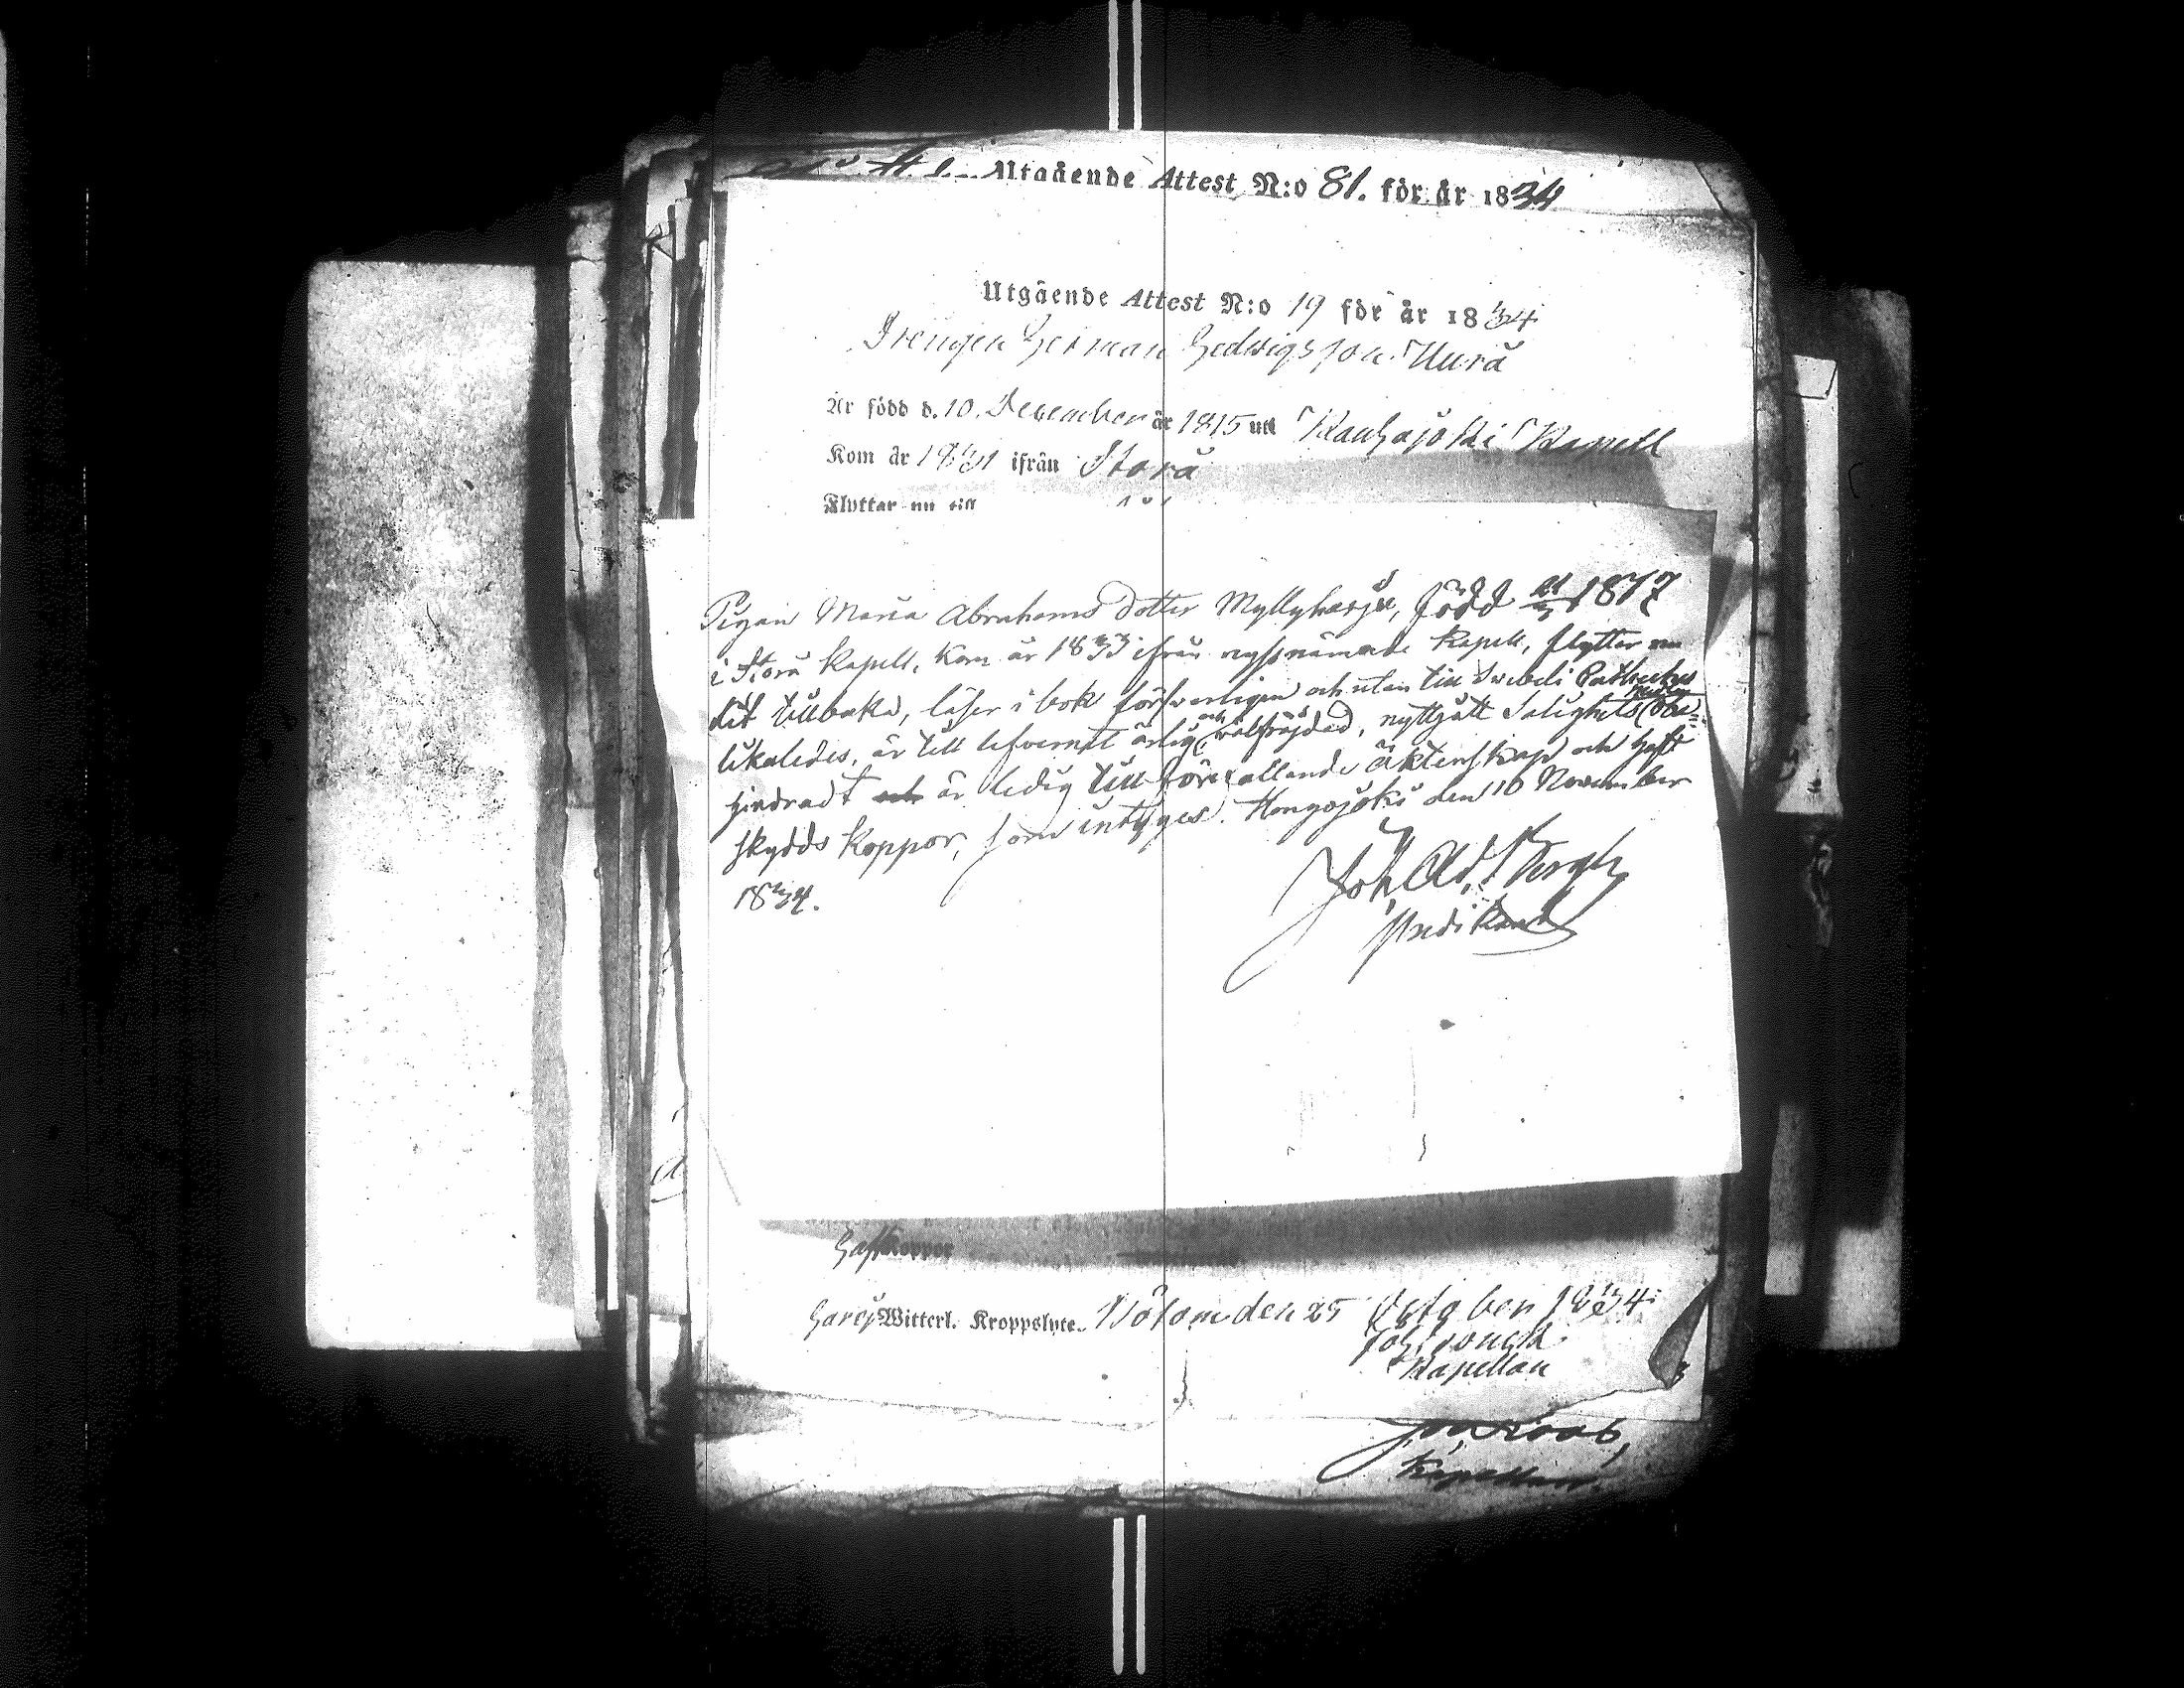 Utgående Attest N:o 81. för år 1834
Utgående Attest N:o 19 för år 1834
Drengen Herman Hedvigsson Uurå
Är född d. 10. December år 1815 uti Kauhajoki Kapell
Kom år 1831 ifrån Storå
Flyttar nu till
Pigan Maria Abrahams dotter Myllyharju, född 1817
i Storå Kapell, kom år 1833 ifrån nyssnämnde Kapell, flyttar nu
dit tillbaka, läser i bok försvarligen och utan till Svebeli
likaledes, är till lefvernet ärlig och välfräjdad, nyttjatt Salighets medlen obe=
hindradt är ledig till förefallande äktenskap och haft
skydds koppor, som intygas. Hongojoki den 10 November
1834.
Joh. Ad. Bergh
Predikant
Haft koppor
Har ej Witterl. Kroppslyte. Bötom den 25 October 1834.
Kapellan
Kapellan.